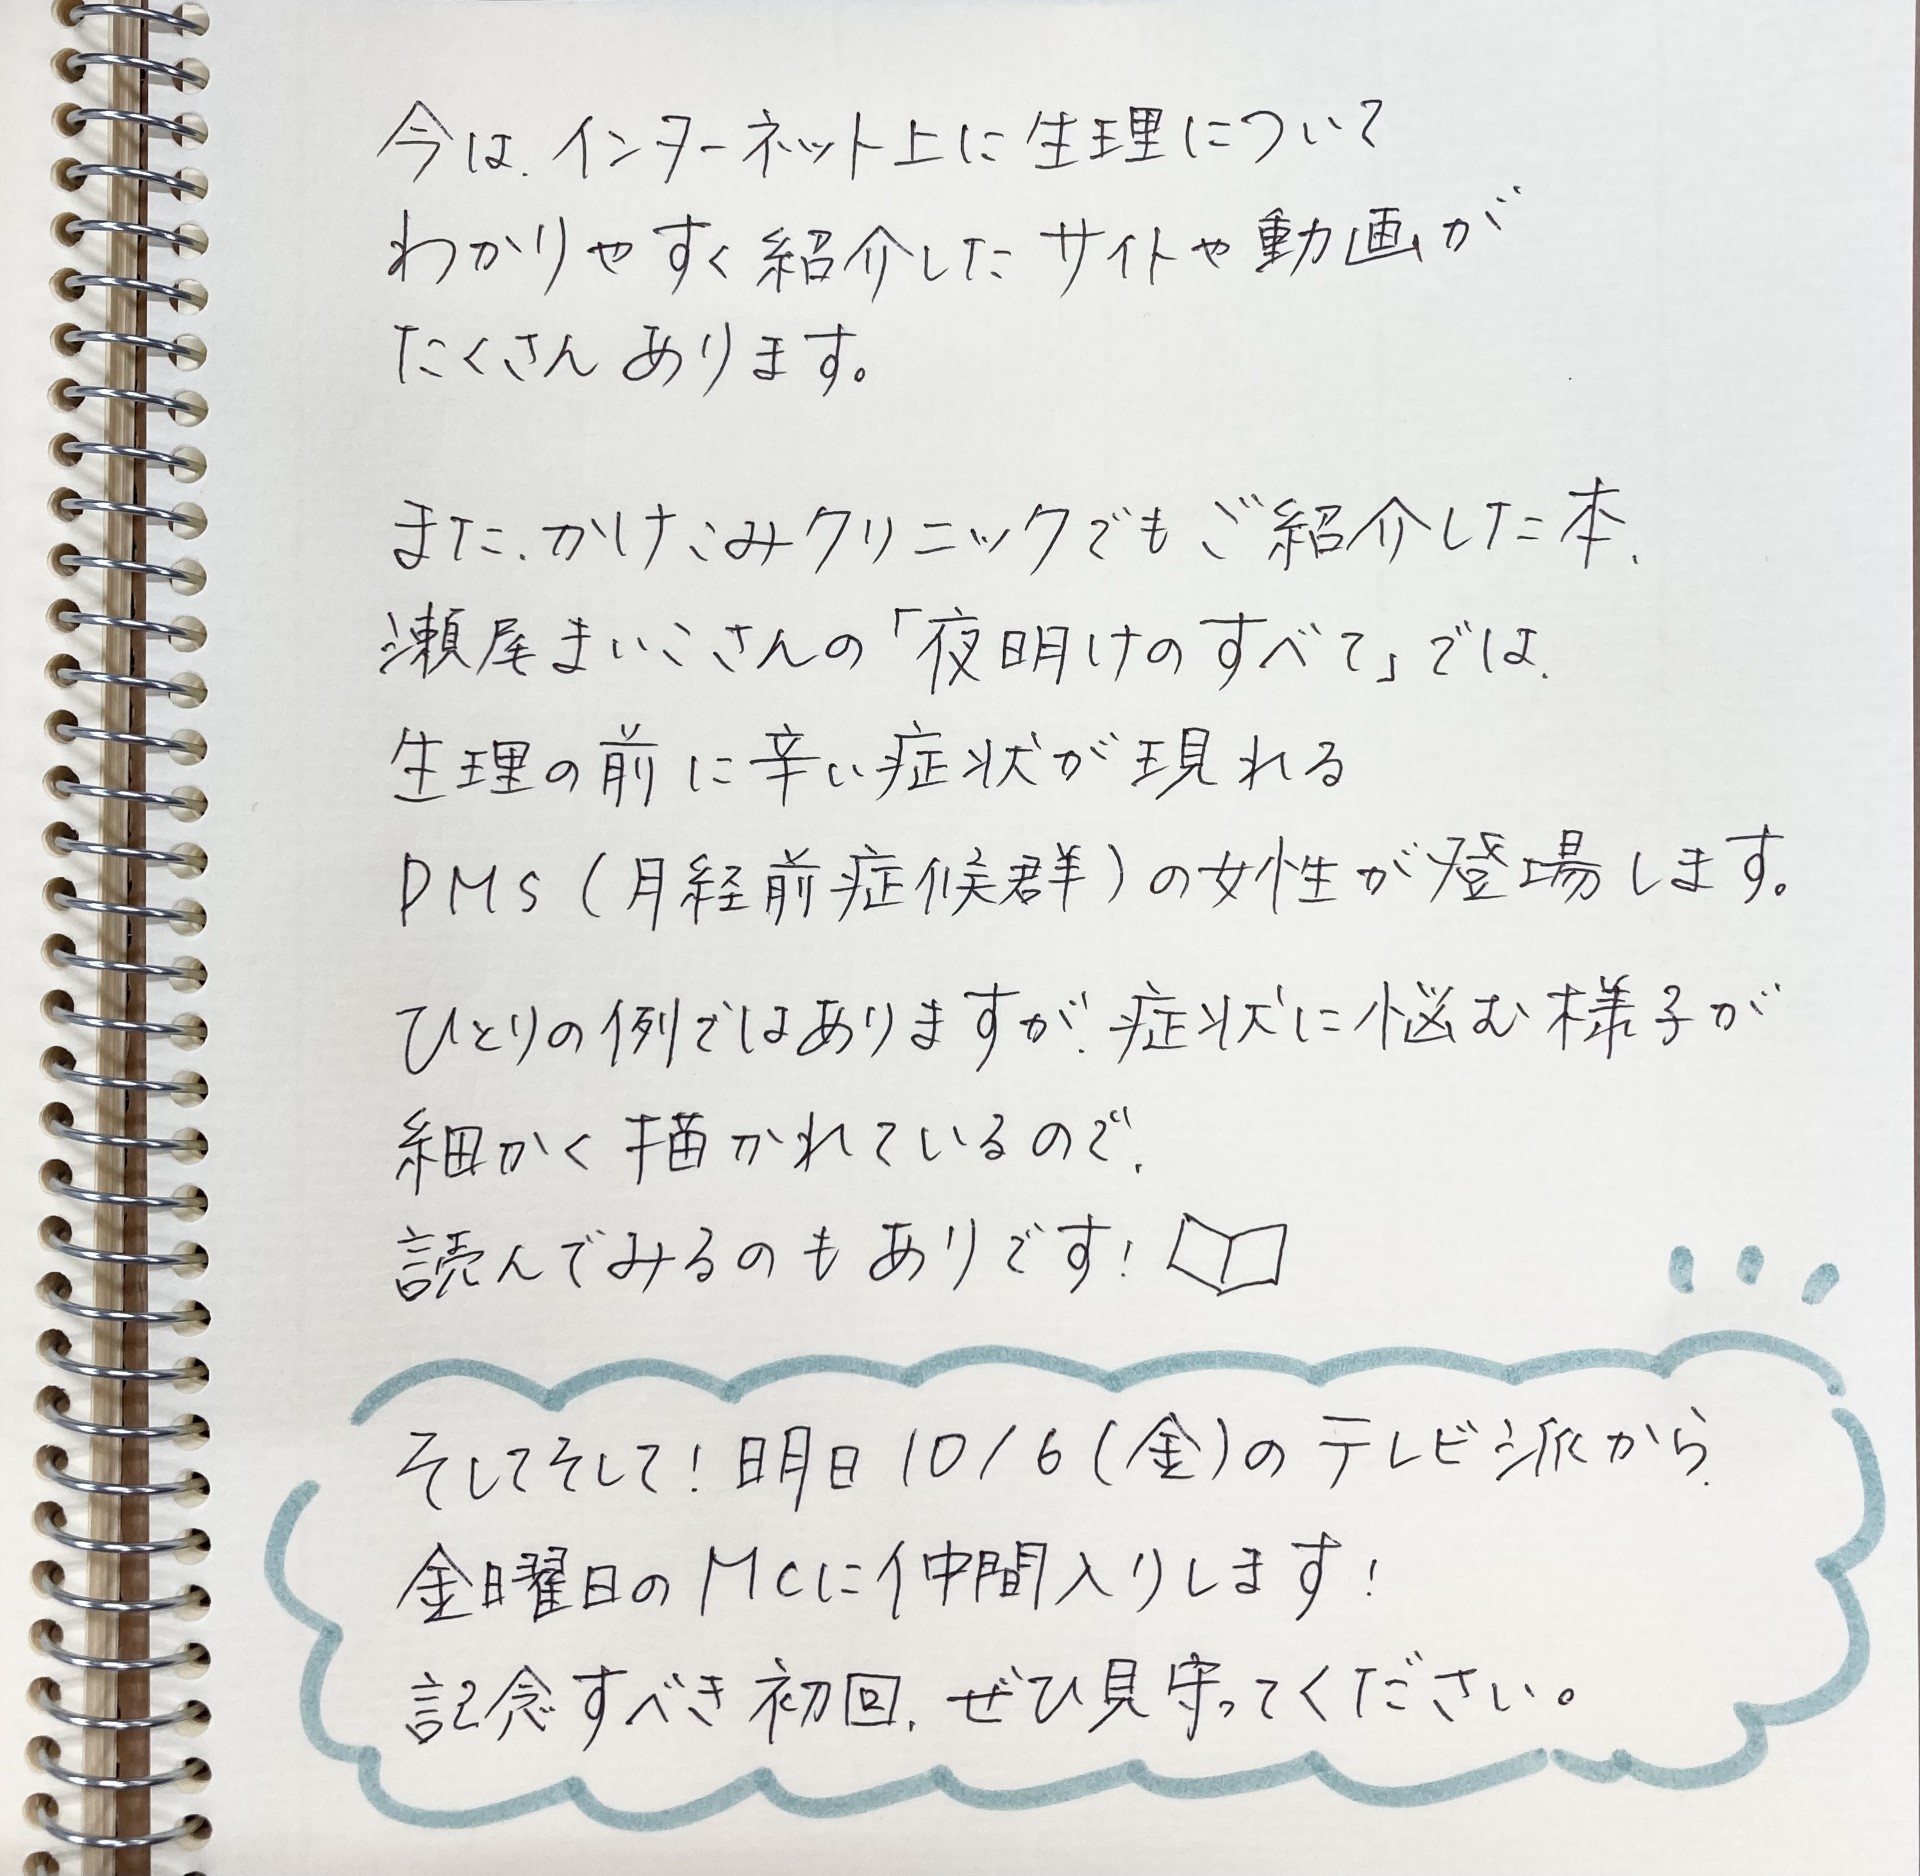 今は、インターネット上に生理について
わかりやすく紹介したサイトや動画が
たくさんあります。
また、かけこみクリニックでもご紹介した本、
瀬尾まいこさんの「夜明けのすべて」では、
生理の前に辛い症状が現れる
PMS(月経前症候群)の女性が登場します。
ひとりの例ではありますが、症状に悩む様子が
細かく描かれているので、
読んでみるのもありです!
そしてそして!明日10/6(金)のテレビ派から、
金曜日のMCに仲間入りします!
記念すべき初回、ぜひ見守ってください。